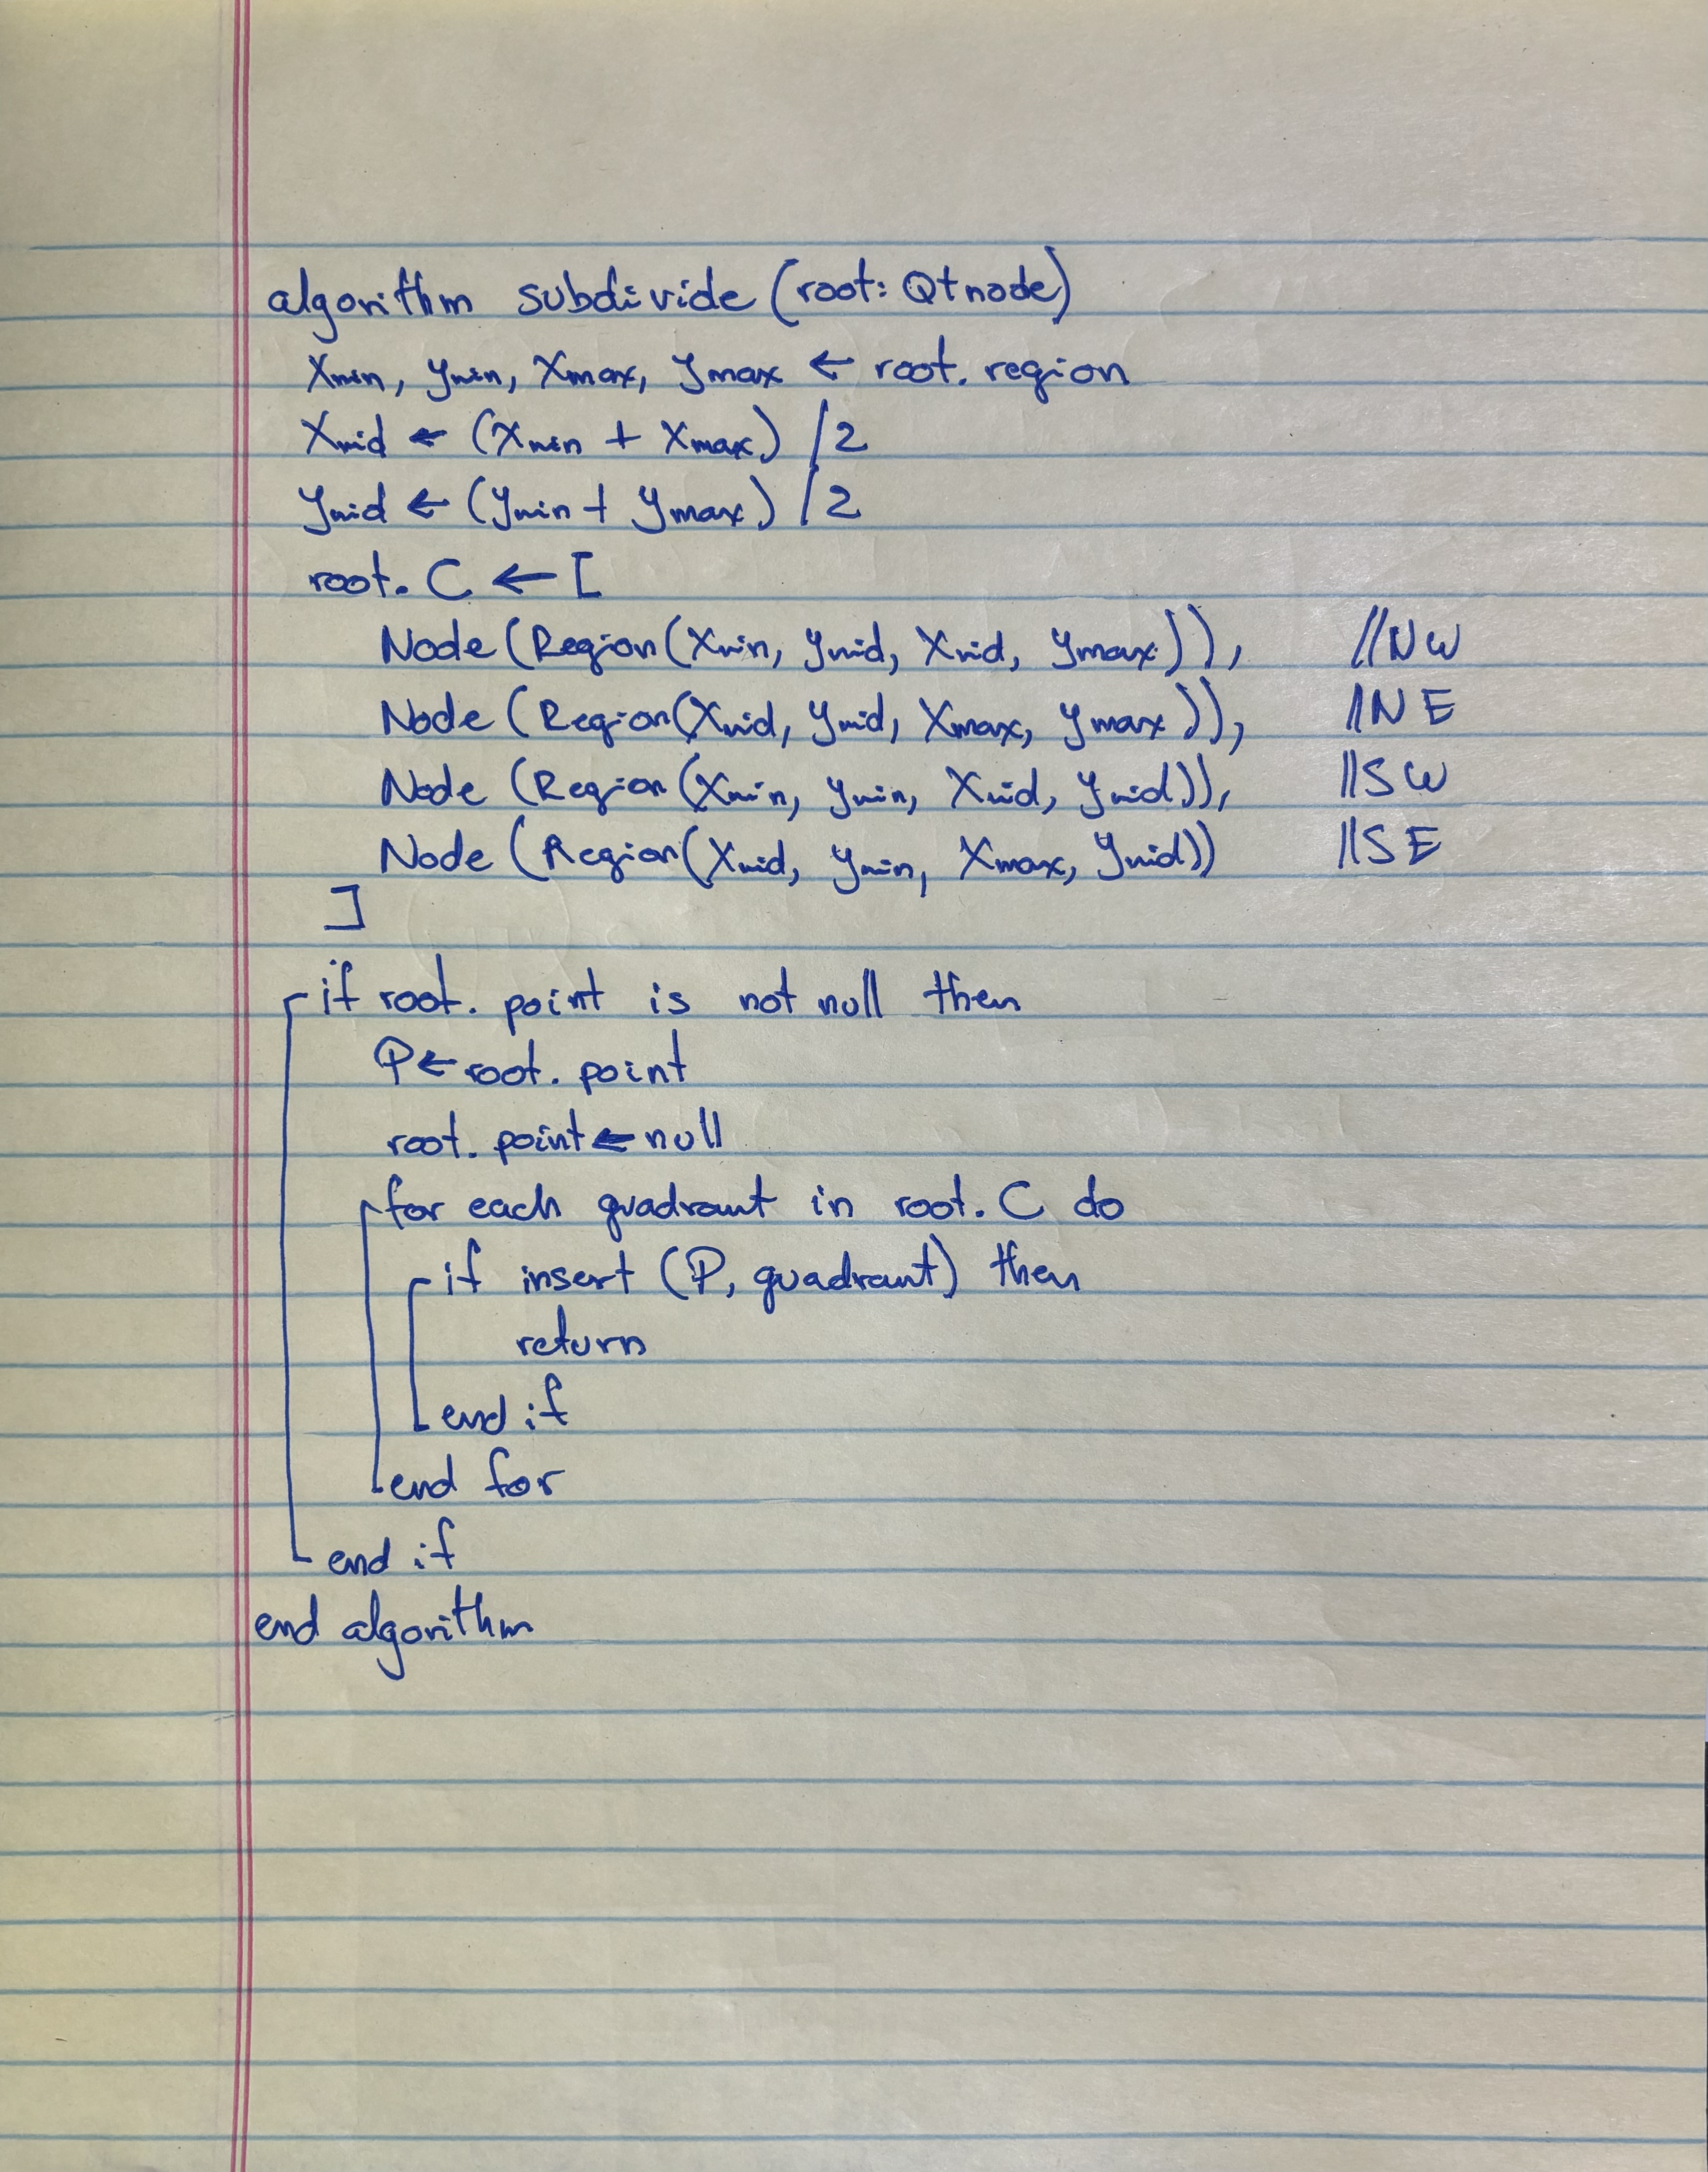 algorithm subdivide (root: Qtnode)
Xmin, ymin, Xmax, ymax ← root. region
Xmid ← (Xmin + Xmax) /2
ymid ← (ymin + ymax) /2
root. C ← [
Node (Region (Xmin, ymid, Xmid, ymax)), //NW
Node (Region (Xmid, ymid, Xmax, ymax)), //NE
Node (Region (Xmin, ymin, Xmid, ymid)), //SW
Node (Region (Xmid, ymin, Xmax, ymid)) //SE
]
if root. point is not null then
P ← root. point
root. point ← null
for each quadrant in root. C do
if insert (P, quadrant) then
return
end if
end for
end if
end algorithm